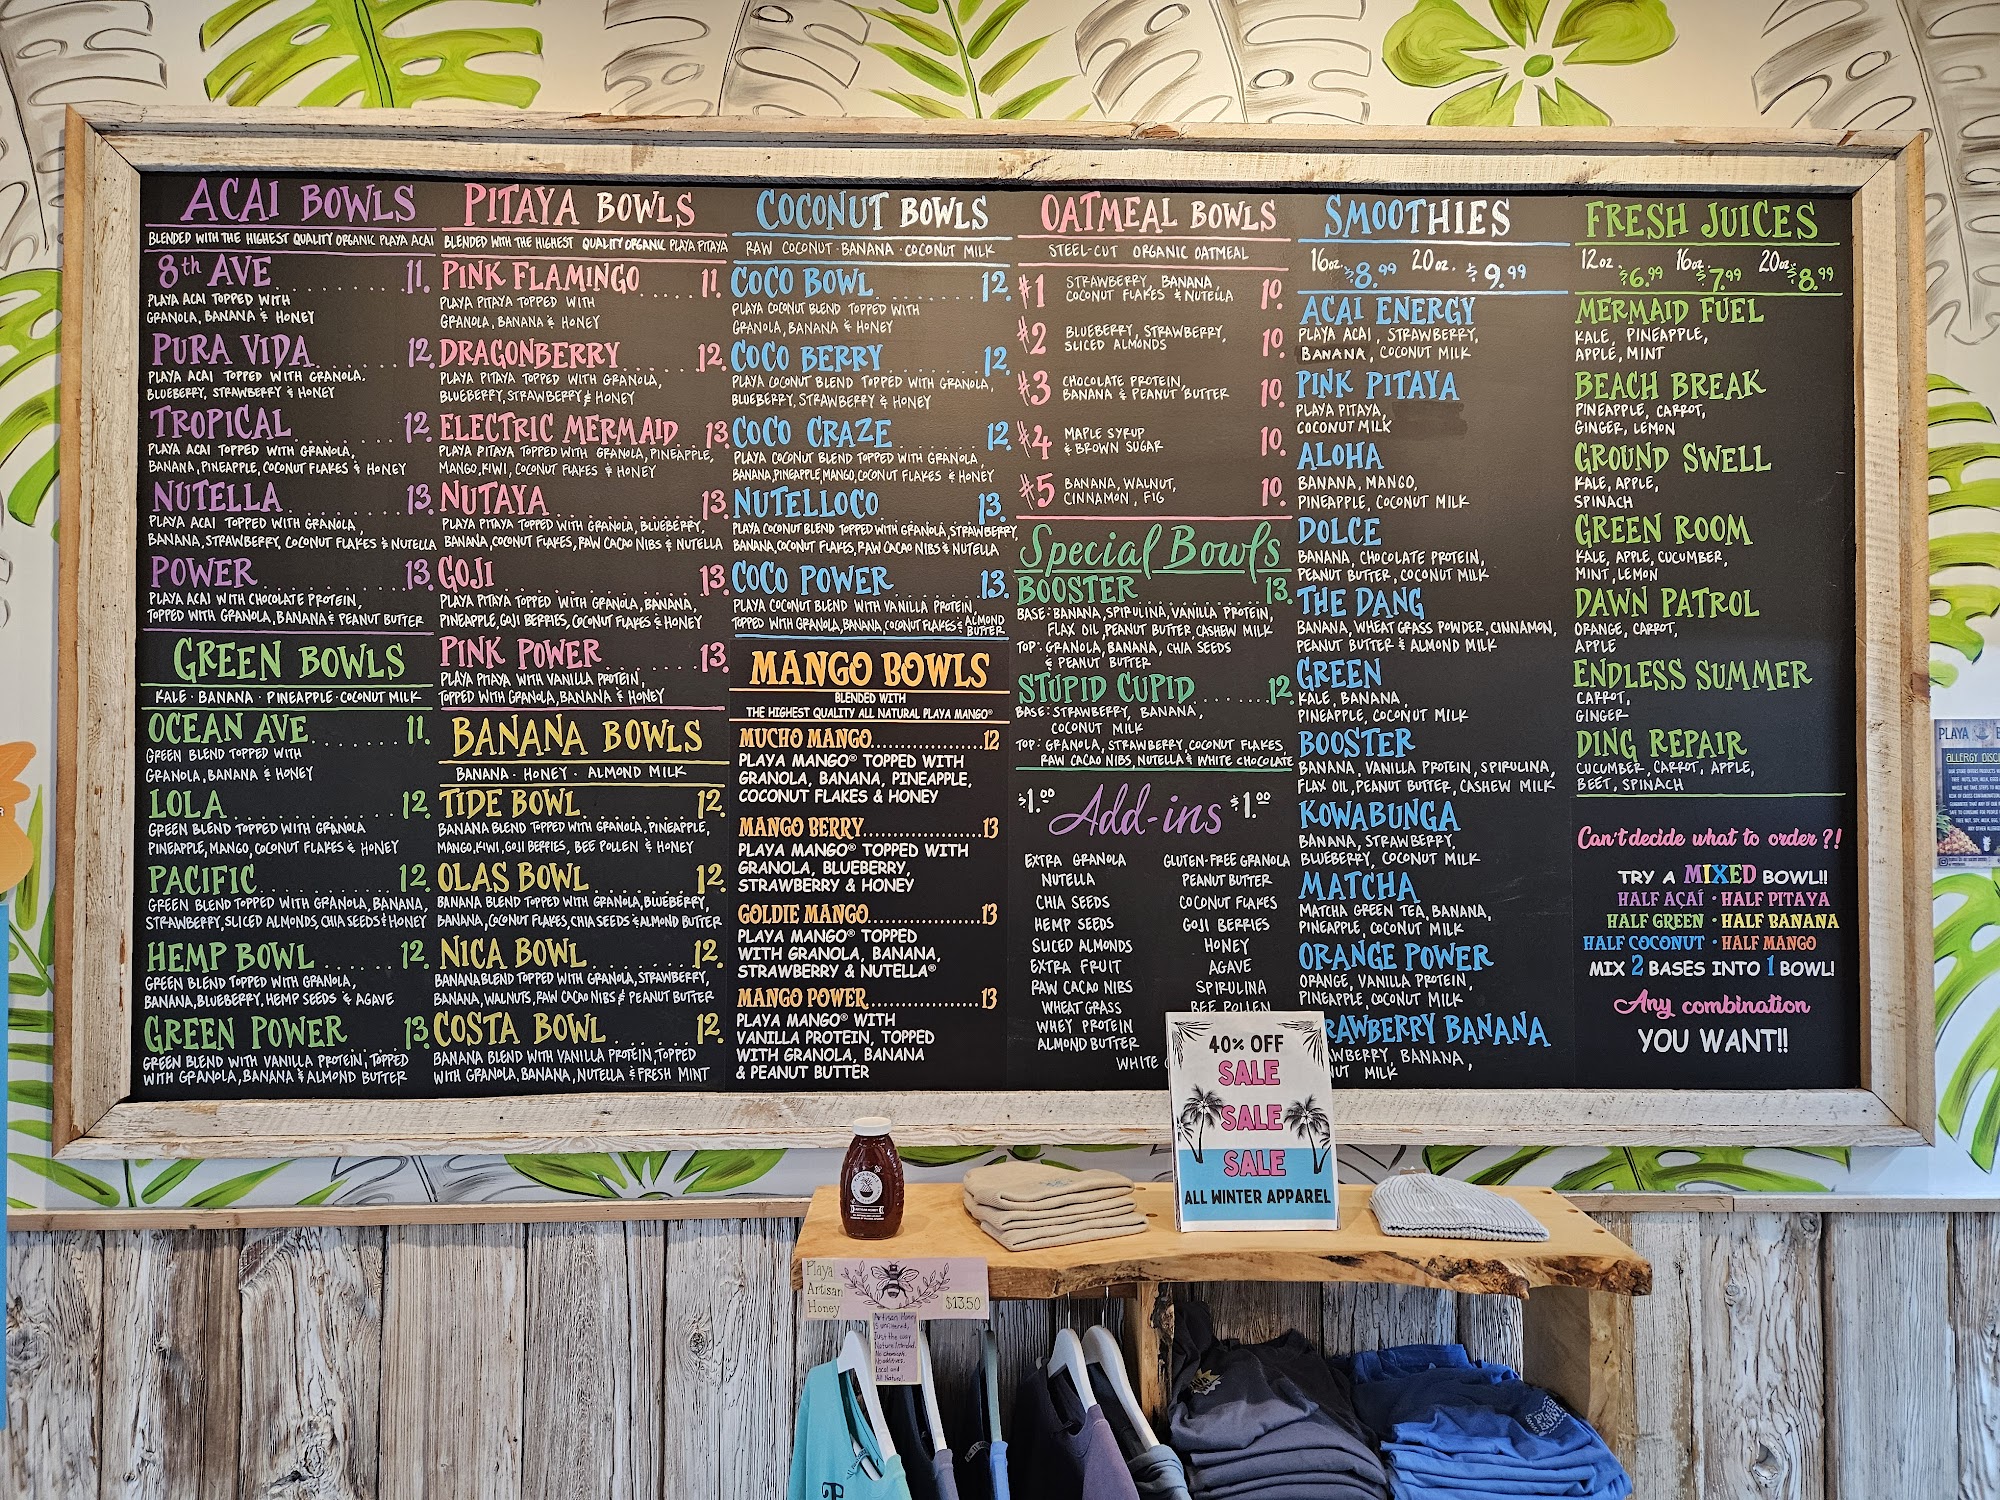 ACAI BOWLS
BLENDED WITH THE HIGHEST QUALITY ORGANIC PLAYA ACAI
8th AVE 11.
PLAYA ACAI TOPPED WITH
GRANOLA, BANANA & HONEY
PURA VIDA 12.
PLAYA ACAI TOPPED WITH GRANOLA,
BLUEBERRY, STRAWBERRY & HONEY
TROPICAL 12.
PLAYA ACAI TOPPED WITH GRANOLA,
BANANA, PINEAPPLE, COCONUT FLAKES & HONEY
NUTELLA 13.
PLAYA ACAI TOPPED WITH GRANOLA,
BANANA, STRAWBERRY, COCONUT FLAKES & NUTELLA
POWER 13.
PLAYA ACAI WITH CHOCOLATE PROTEIN,
TOPPED WITH GRANOLA, BANANA & PEANUT BUTTER
GREEN BOWLS
KALE · BANANA · PINEAPPLE · COCONUT MILK
OCEAN AVE 11.
GREEN BLEND TOPPED WITH
GRANOLA, BANANA & HONEY
LOLA 12.
GREEN BLEND TOPPED WITH GRANOLA
PINEAPPLE, MANGO, COCONUT FLAKES & HONEY
PACIFIC 12.
GREEN BLEND TOPPED WITH GRANOLA, BANANA,
STRAWBERRY, SLICED ALMONDS, CHIA SEEDS & HONEY
HEMP BOWL 12.
GREEN BLEND TOPPED WITH GRANOLA,
BANANA, BLUEBERRY, HEMP SEEDS & AGAVE
GREEN POWER 13.
GREEN BLEND WITH VANILLA PROTEIN, TOPPED
WITH GRANOLA, BANANA & ALMOND BUTTER
PITAYA BOWLS
BLENDED WITH THE HIGHEST QUALITY ORGANIC PLAYA PITAYA
PINK FLAMINGO 11.
PLAYA PITAYA TOPPED WITH
GRANOLA, BANANA & HONEY
DRAGONBERRY 12.
PLAYA PITAYA TOPPED WITH GRANOLA,
BLUEBERRY, STRAWBERRY & HONEY
ELECTRIC MERMAID 13.
PLAYA PITAYA TOPPED WITH GRANOLA, PINEAPPLE,
MANGO, KIWI, COCONUT FLAKES & HONEY
NUTAYA 13.
PLAYA PITAYA TOPPED WITH GRANOLA, BLUEBERRY,
BANANA, COCONUT FLAKES, RAW CACAO NIBS & NUTELLA
GOJI 13.
PLAYA PITAYA TOPPED WITH GRANOLA, BANANA,
PINEAPPLE, GOJI BERRIES, COCONUT FLAKES & HONEY
PINK POWER 13.
PLAYA PITAYA WITH VANILLA PROTEIN,
TOPPED WITH GRANOLA, BANANA & HONEY
BANANA BOWLS
BANANA · HONEY · ALMOND MILK
TIDE BOWL 12.
BANANA BLEND TOPPED WITH GRANOLA, PINEAPPLE,
MANGO, KIWI, GOJI BERRIES, BEE POLLEN & HONEY
OLAS BOWL 12.
BANANA BLEND TOPPED WITH GRANOLA, BLUEBERRY,
BANANA, COCONUT FLAKES, CHIA SEEDS & ALMOND BUTTER
NICA BOWL 12.
BANANA BLEND TOPPED WITH GRANOLA, STRAWBERRY,
BANANA, WALNUTS, RAW CACAO NIBS & PEANUT BUTTER
COSTA BOWL 12.
BANANA BLEND WITH VANILLA PROTEIN, TOPPED
WITH GRANOLA, BANANA, NUTELLA & FRESH MINT
COCONUT BOWLS
RAW COCONUT · BANANA · COCONUT MILK
COCO BOWL 12.
PLAYA COCONUT BLEND TOPPED WITH
GRANOLA, BANANA & HONEY
COCO BERRY 12.
PLAYA COCONUT BLEND TOPPED WITH GRANOLA,
BLUEBERRY, STRAWBERRY & HONEY
COCO CRAZE 12.
PLAYA COCONUT BLEND TOPPED WITH GRANOLA,
BANANA, PINEAPPLE, MANGO, COCONUT FLAKES & HONEY
NUTELLOCO 13.
PLAYA COCONUT BLEND TOPPED WITH GRANOLA, STRAWBERRY,
BANANA, COCONUT FLAKES, RAW CACAO NIBS & NUTELLA
COCO POWER 13.
PLAYA COCONUT BLEND WITH VANILLA PROTEIN,
TOPPED WITH GRANOLA, BANANA, COCONUT FLAKES & ALMOND BUTTER
MANGO BOWLS
BLENDED WITH
THE HIGHEST QUALITY ALL NATURAL PLAYA MANGO®
MUCHO MANGO 12
PLAYA MANGO® TOPPED WITH
GRANOLA, BANANA, PINEAPPLE,
COCONUT FLAKES & HONEY
MANGO BERRY 13
PLAYA MANGO® TOPPED WITH
GRANOLA, BLUEBERRY,
STRAWBERRY & HONEY
GOLDIE MANGO 13
PLAYA MANGO® TOPPED
WITH GRANOLA, BANANA,
STRAWBERRY & NUTELLA®
MANGO POWER 13
PLAYA MANGO® WITH
VANILLA PROTEIN, TOPPED
WITH GRANOLA, BANANA
& PEANUT BUTTER
OATMEAL BOWLS
STEEL-CUT ORGANIC OATMEAL
#1 STRAWBERRY, BANANA, 10.
COCONUT FLAKES & NUTELLA
#2 BLUEBERRY, STRAWBERRY, 10.
SLICED ALMONDS
#3 CHOCOLATE PROTEIN, 10.
BANANA & PEANUT BUTTER
#4 MAPLE SYRUP 10.
& BROWN SUGAR
#5 BANANA, WALNUT, 10.
CINNAMON, FIG
Special Bowls
BOOSTER 13.
BASE: BANANA, SPIRULINA, VANILLA PROTEIN,
FLAX OIL, PEANUT BUTTER, CASHEW MILK
TOP: GRANOLA, BANANA, CHIA SEEDS
& PEANUT BUTTER
STUPID CUPID 12.
BASE: STRAWBERRY, BANANA,
COCONUT MILK
TOP: GRANOLA, STRAWBERRY, COCONUT FLAKES,
RAW CACAO NIBS, NUTELLA & WHITE CHOCOLATE
$1.00 Add-ins $1.00
EXTRA GRANOLA GLUTEN-FREE GRANOLA
NUTELLA PEANUT BUTTER
CHIA SEEDS COCONUT FLAKES
HEMP SEEDS GOJI BERRIES
SLICED ALMONDS HONEY
EXTRA FRUIT AGAVE
RAW CACAO NIBS SPIRULINA
WHEAT GRASS BEE POLLEN
WHEY PROTEIN
ALMOND BUTTER
WHITE
SMOOTHIES
16oz. $8.99 20oz. $9.99
ACAI ENERGY
PLAYA ACAI, STRAWBERRY,
BANANA, COCONUT MILK
PINK PITAYA
PLAYA PITAYA,
COCONUT MILK
ALOHA
BANANA, MANGO,
PINEAPPLE, COCONUT MILK
DOLCE
BANANA, CHOCOLATE PROTEIN,
PEANUT BUTTER, COCONUT MILK
THE DANG
BANANA, WHEAT GRASS POWDER, CINNAMON,
PEANUT BUTTER & ALMOND MILK
GREEN
KALE, BANANA,
PINEAPPLE, COCONUT MILK
BOOSTER
BANANA, VANILLA PROTEIN, SPIRULINA,
FLAX OIL, PEANUT BUTTER, CASHEW MILK
KOWABUNGA
BANANA, STRAWBERRY,
BLUEBERRY, COCONUT MILK
MATCHA
MATCHA GREEN TEA, BANANA,
PINEAPPLE, COCONUT MILK
ORANGE POWER
ORANGE, VANILLA PROTEIN,
PINEAPPLE, COCONUT MILK
RAWBERRY BANANA
WBERRY, BANANA,
NUT MILK
FRESH JUICES
12oz. $6.99 16oz. $7.99 20oz. $8.99
MERMAID FUEL
KALE, PINEAPPLE,
APPLE, MINT
BEACH BREAK
PINEAPPLE, CARROT,
GINGER, LEMON
GROUND SWELL
KALE, APPLE,
SPINACH
GREEN ROOM
KALE, APPLE, CUCUMBER,
MINT, LEMON
DAWN PATROL
ORANGE, CARROT,
APPLE
ENDLESS SUMMER
CARROT,
GINGER
DING REPAIR
CUCUMBER, CARROT, APPLE,
BEET, SPINACH
Can't decide what to order?!
TRY A MIXED BOWL!!
HALF AÇAÍ · HALF PITAYA
HALF GREEN · HALF BANANA
HALF COCONUT · HALF MANGO
MIX 2 BASES INTO 1 BOWL!
Any combination
YOU WANT!!
40% OFF
SALE
SALE
SALE
ALL WINTER APPAREL
Playa
Artisan
Honey $13.50
Artisan Honey
is unfiltered,
Just the way
Nature Intended.
No chemicals.
No additives.
Local and
All Natural.
PLAYA
ALLERGY